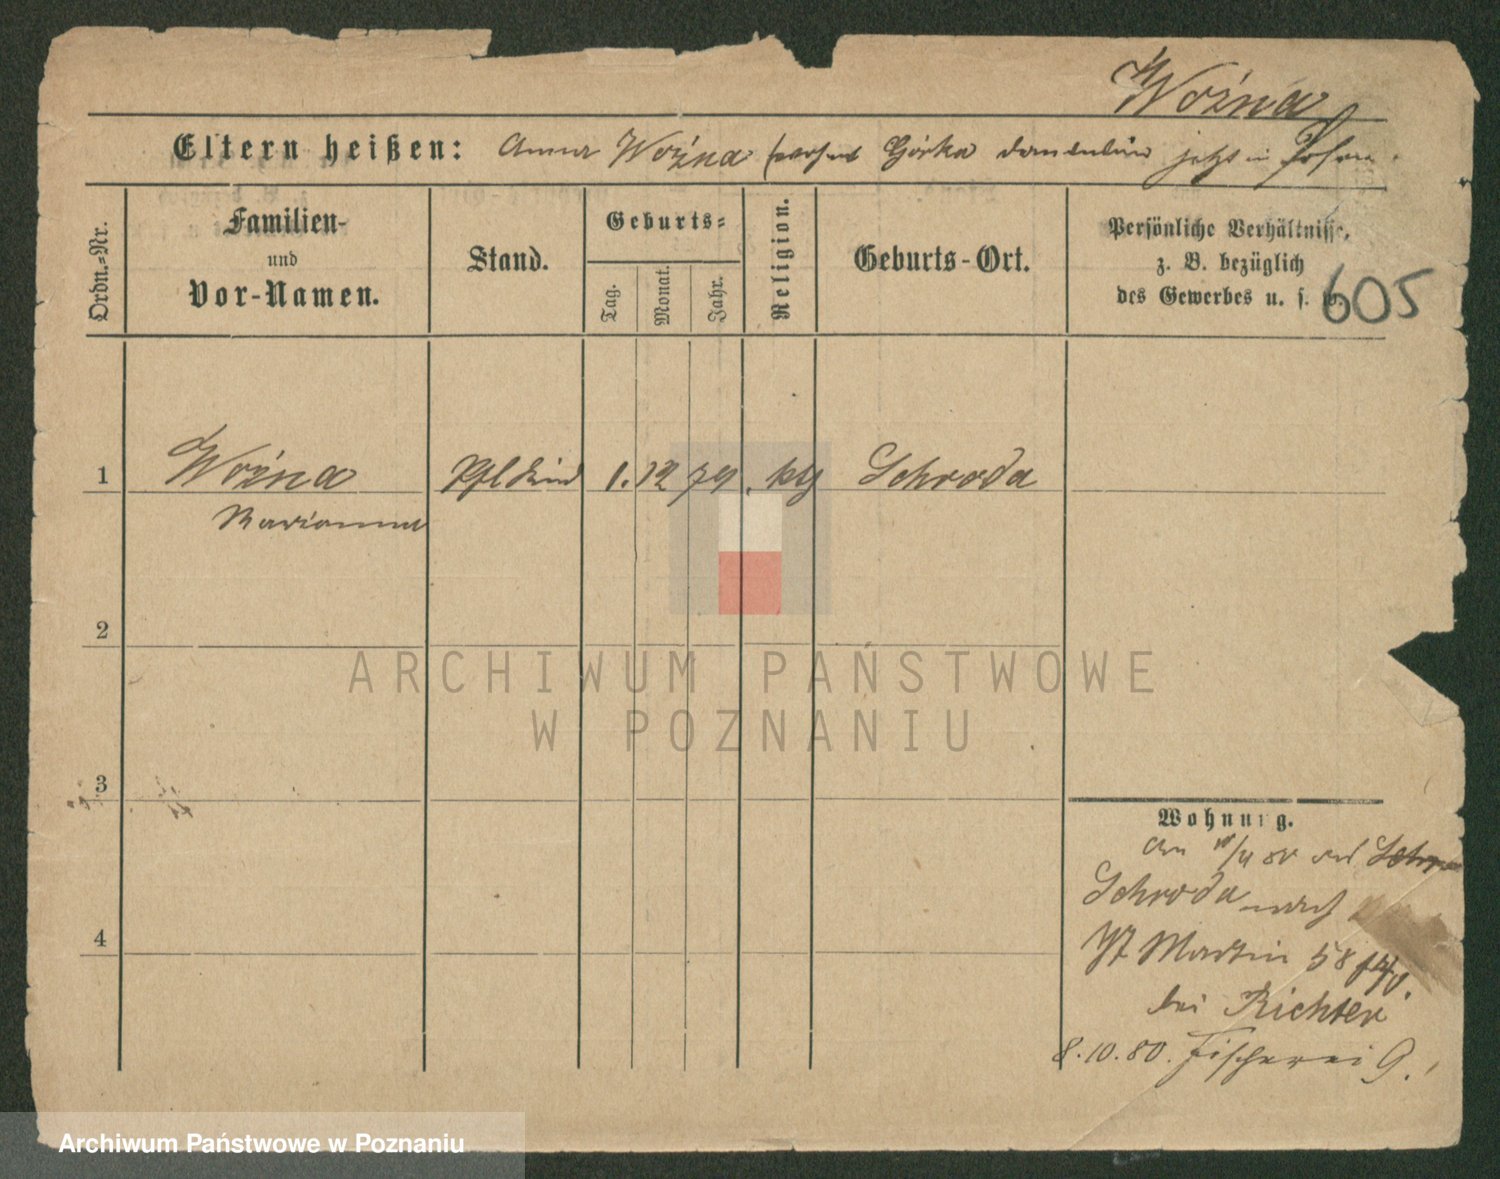 Woźna
Eltern heißen: Anna Woźna Górka jetzt in Posen.
Ordn.-Nr.
Familien-
und
Vor-Namen.
Stand.
Geburts-
Tag.
Monat.
Jahr.
Religion.
Geburts-Ort.
Persönliche Verhältnisse,
z. B. bezüglich
des Gewerbes u. s. w.
605
1 Woźna Pflkind 1. 12 79. ktg Schroda
Marianna
2
3
4
Wohnung.
Schroda nach
St Martin 58
bei Richter
8.10.80. Fischerei 9.
ARCHIWUM PAŃSTWOWE
W POZNANIU
Archiwum Państwowe w Poznaniu